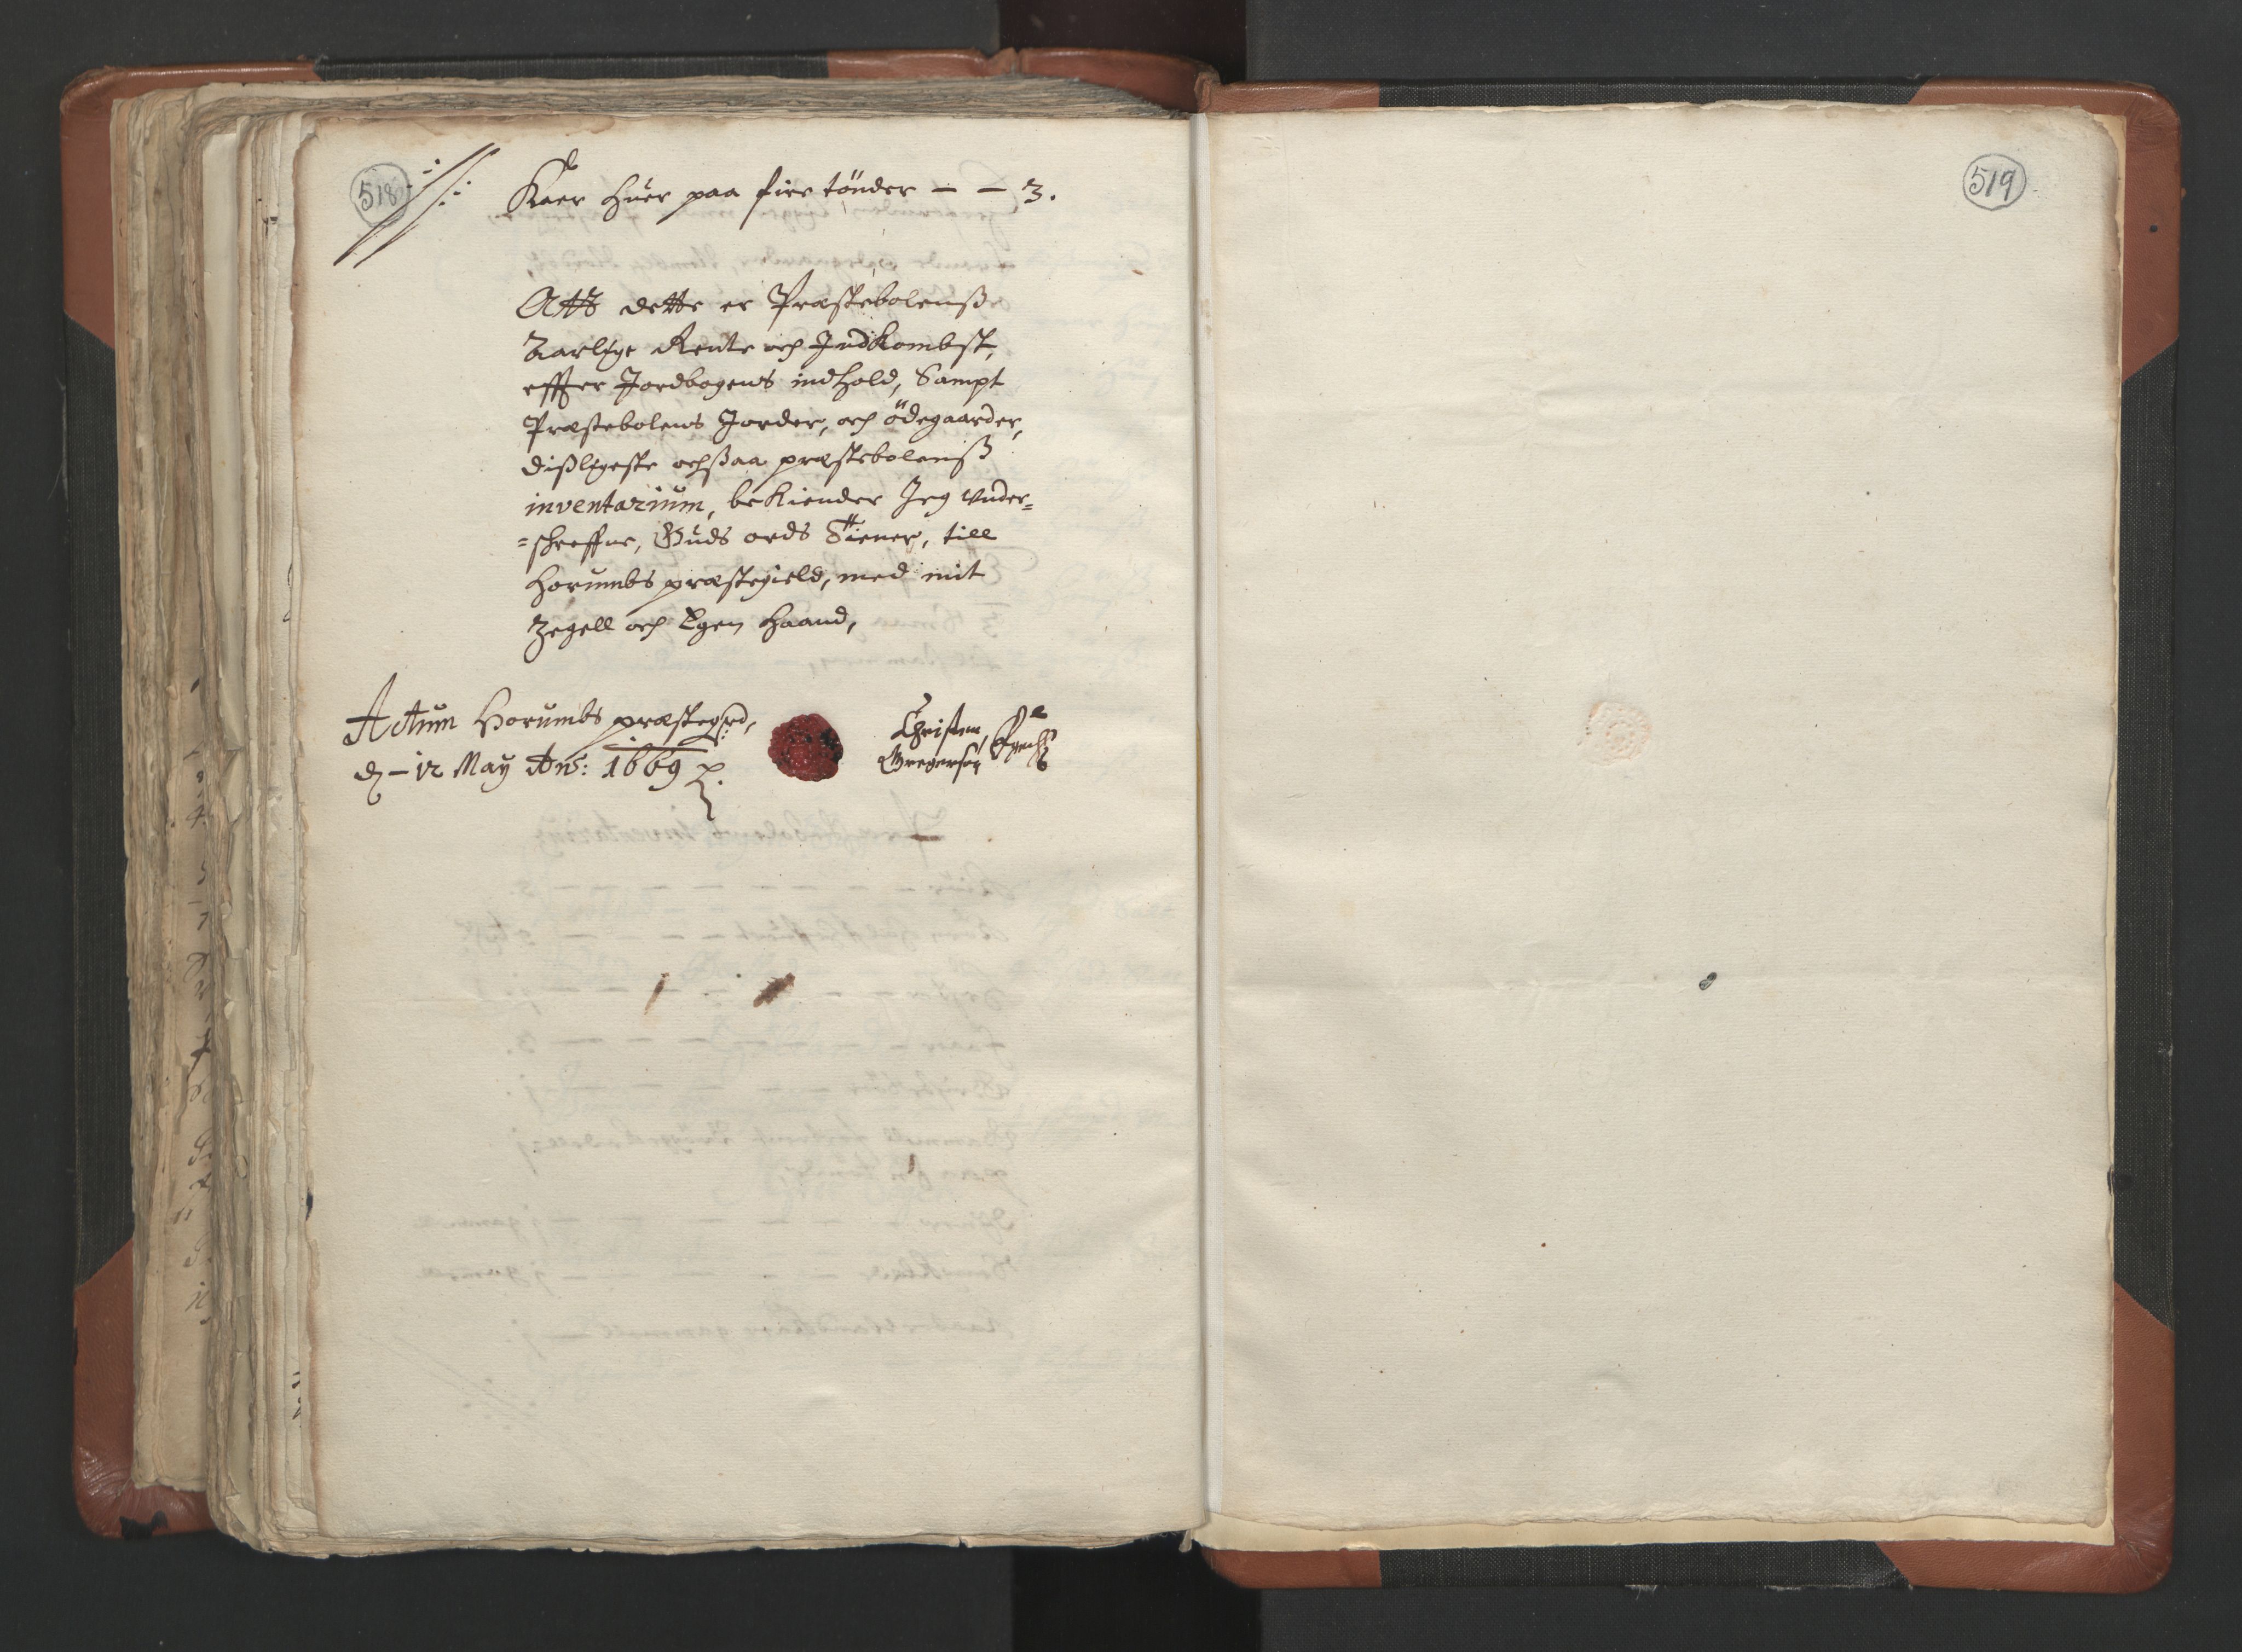 518
Kaer huer paa fire tönder – – 3.
Att dette er Præstebolenß
Aarlige Rente och Indkombst,
effter Jordbogens indhold, Sampt
Præstebolens Jorder, och ödegaarder,
dißligeste ochsaa præstebolenß
inventarium, bekiender Jeg Vnder=
=schreffne, Guds ords Tiener, till
Horumbs præstegield, med mit
Zegell och Egen Haand,
Actum Horumbs præstegrd,
d – 12 May An̄o: 1669
Christen
Gregersøn
519